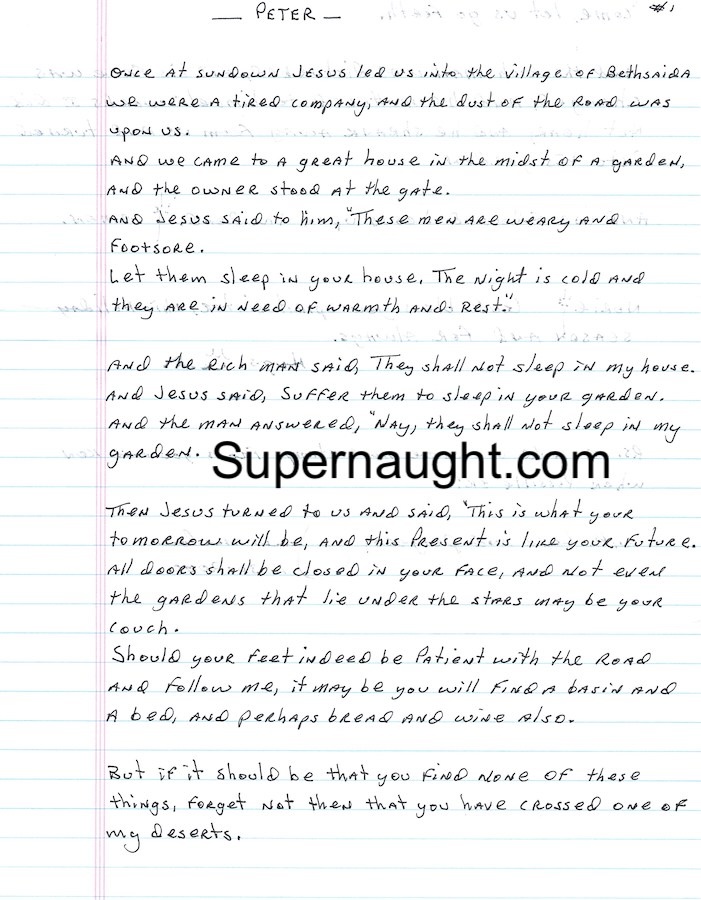 — PETER —
#1
Once at sundown Jesus led us into the village of Bethsaida
we were a tired company, and the dust of the road was
upon us.
And we came to a great house in the midst of a garden,
and the owner stood at the gate.
And Jesus said to him, "These men are weary and
footsore.
Let them sleep in your house. The night is cold and
they are in need of warmth and rest."
And the rich man said, They shall not sleep in my house.
And Jesus said, Suffer them to sleep in your garden.
And the man answered, "Nay, they shall not sleep in my
garden.
Supernaught.com
Then Jesus turned to us and said, "This is what your
tomorrow will be, and this present is like your future.
All doors shall be closed in your face, and not even
the gardens that lie under the stars may be your
couch.
Should your feet indeed be patient with the road
and follow me, it may be you will find a basin and
a bed, and perhaps bread and wine also.
But if it should be that you find none of these
things, forget not then that you have crossed one of
my deserts.